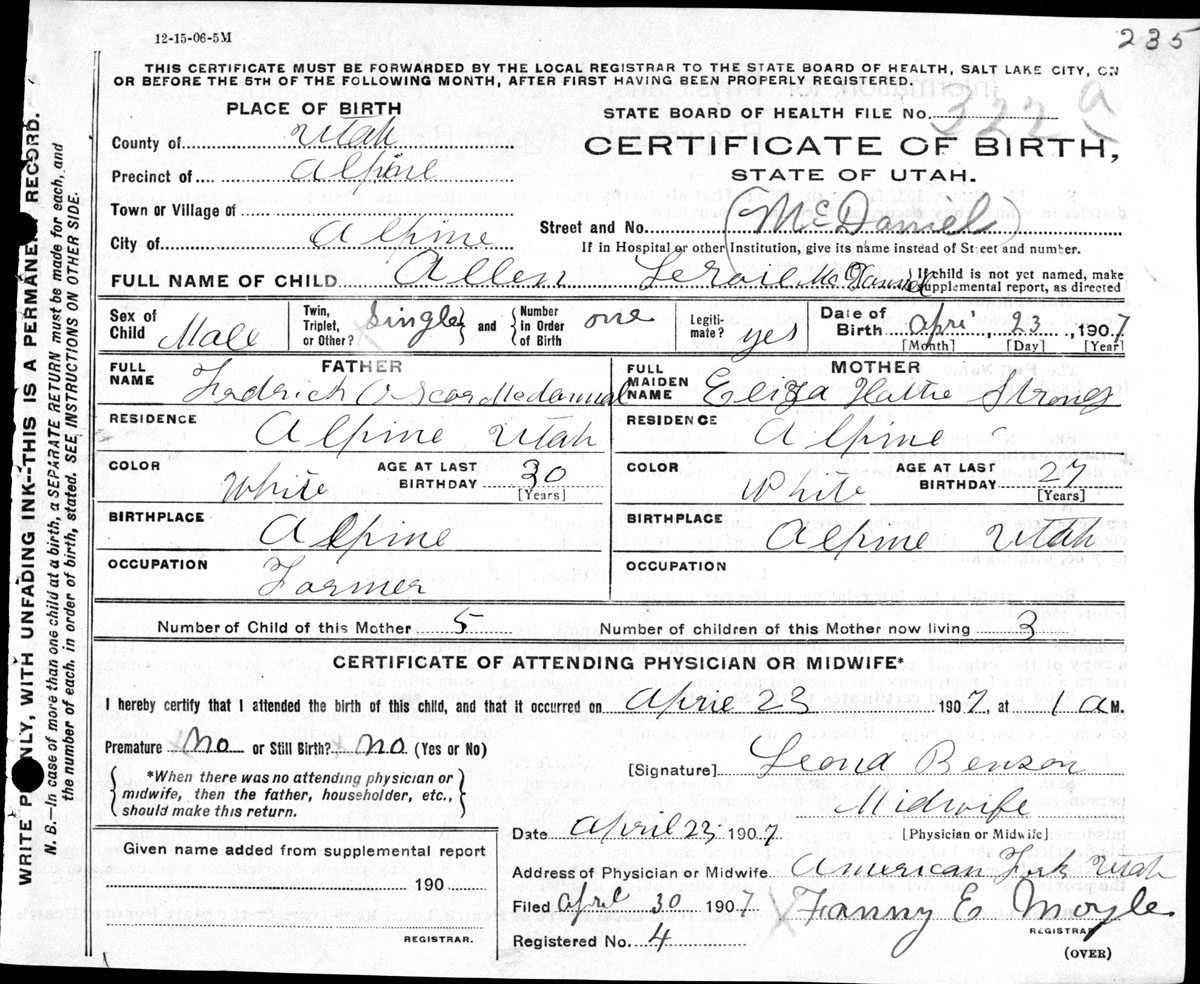 12-15-06-5M
235
THIS CERTIFICATE MUST BE FORWARDED BY THE LOCAL REGISTRAR TO THE STATE BOARD OF HEALTH, SALT LAKE CITY, ON
OR BEFORE THE 5TH OF THE FOLLOWING MONTH, AFTER FIRST HAVING BEEN PROPERLY REGISTERED.
PLACE OF BIRTH
County of Utah
Precinct of Alpine
Town or Village of
City of Alpine
STATE BOARD OF HEALTH FILE No. 322 a
CERTIFICATE OF BIRTH,
STATE OF UTAH.
Street and No. (McDaniel)
If in Hospital or other Institution, give its name instead of Street and number.
FULL NAME OF CHILD Allen
If child is not yet named, make supplemental report, as directed
Sex of Child Male
Twin, Triplet, or Other? Single and Number in Order of Birth one
Legitimate? yes
Date of Birth Apri', 23, 1907
[Month] [Day] [Year]
FATHER
FULL NAME Fredrick Oscar Mcdannial
RESIDENCE Alpine Utah
COLOR White AGE AT LAST BIRTHDAY 30 [Years]
BIRTHPLACE Alpine
OCCUPATION Farmer
MOTHER
FULL MAIDEN NAME Eliza Hattie Strong
RESIDENCE Alpine
COLOR White AGE AT LAST BIRTHDAY 27 [Years]
BIRTHPLACE Alpine Utah
OCCUPATION
Number of Child of this Mother 5 Number of children of this Mother now living 3
CERTIFICATE OF ATTENDING PHYSICIAN OR MIDWIFE*
I hereby certify that I attended the birth of this child, and that it occurred on Aprie 23 1907, at 1 a M.
Premature no or Still Birth? no (Yes or No)
*When there was no attending physician or
midwife, then the father, householder, etc.,
should make this return.
[Signature] Leona Benson
Midwife
[Physician or Midwife]
Date April 23 1907
Address of Physician or Midwife American Fork Utah
Given name added from supplemental report
190
REGISTRAR.
Filed April 30 1907 Fanny E Moyle
REGISTRAR
Registered No. 4
(OVER)
WRITE PLAINLY, WITH UNFADING INK--THIS IS A PERMANENT RECORD.
N. B.--In case of more than one child at a birth, a SEPARATE RETURN must be made for each, and
the number of each, in order of birth, stated. SEE INSTRUCTIONS ON OTHER SIDE.